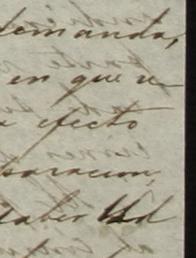 demanda,
en que se
efecto
paracion,
haber Ud